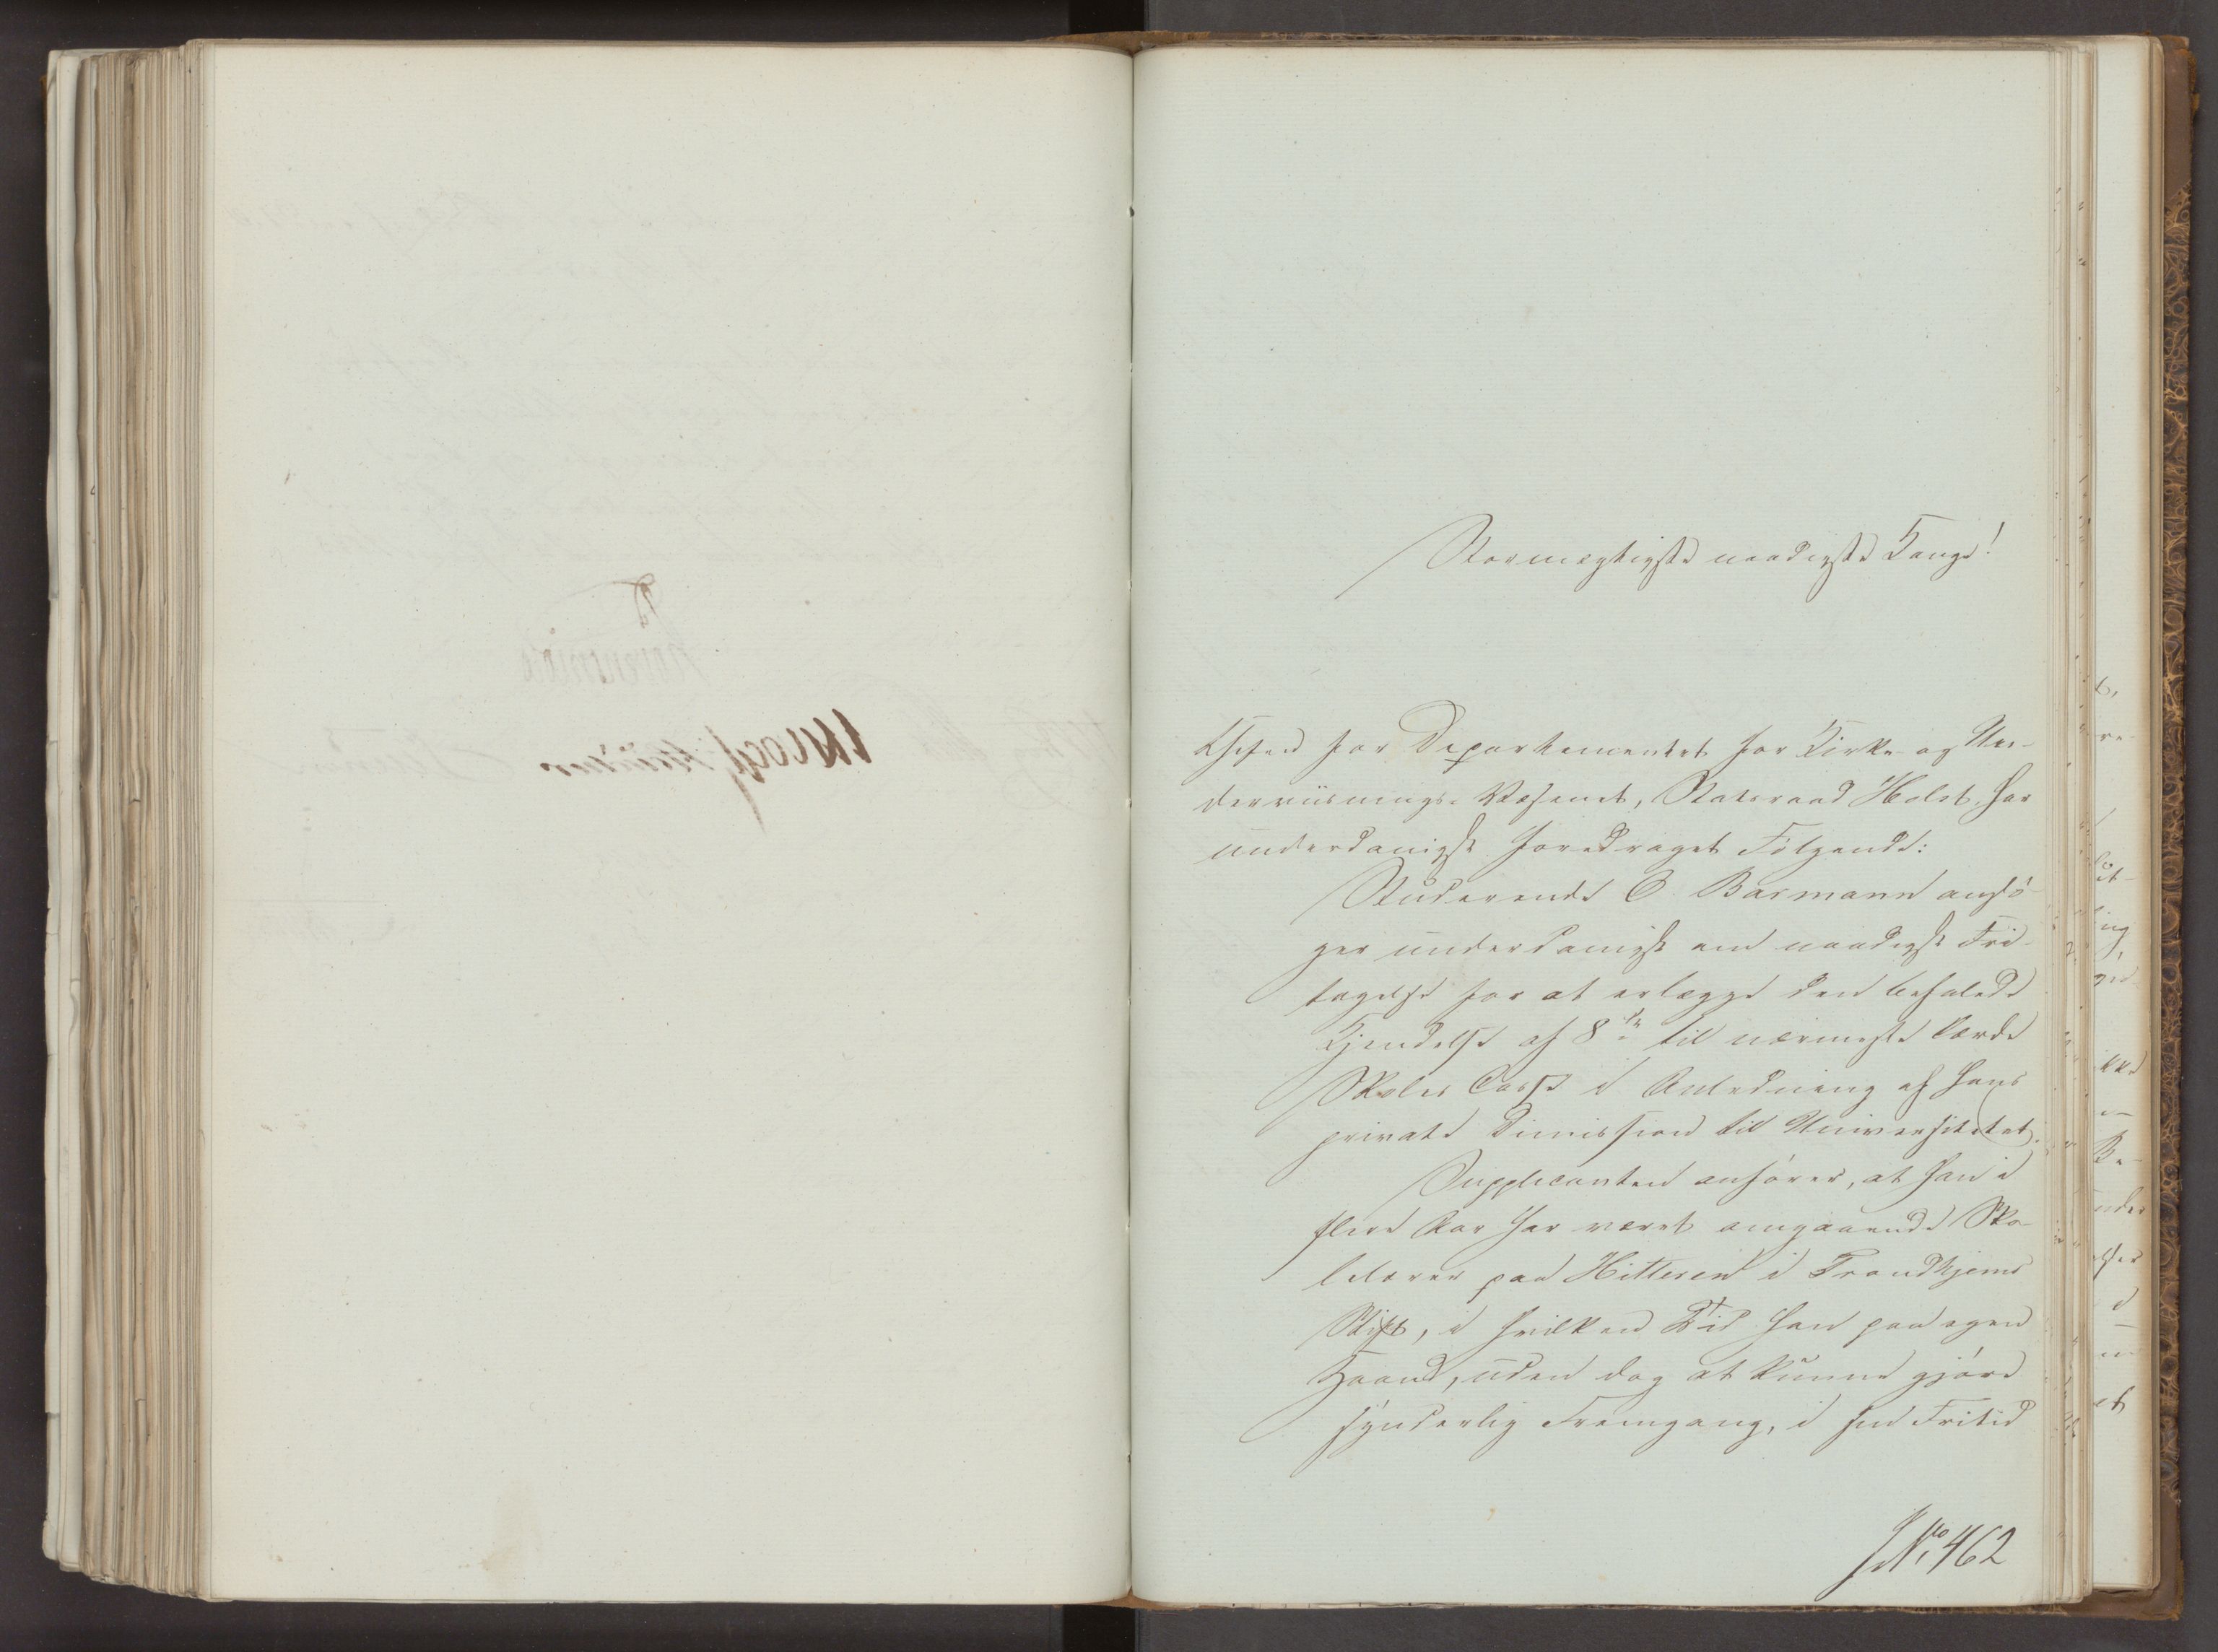 Stormægtigste naadigste Konge!
Chefen for Departementet for Kirke- og Un-
derviisnings-Væsenet, Statsraad Holst har
underdanigst foredraget Følgende:
Studerende C. Barmann ansø-
ger underdanigst om naadigst Fri-
tagelse for at erlægge den befalede
Kjendelse af 8 til nærmeste lærde
Skoles Casse i Anledning af hans
private Dimission til Universitetet.
Supplicanten anfører, at han i
flere Aar har været omgaaende Sko-
lelærer paa Hitteren i Trondhjems
Stift, i hvilken Tid han paa egen
Haand, uden dog at kunne gjøre
synderlig Fremgang, i sin Fritid
J.No. 462